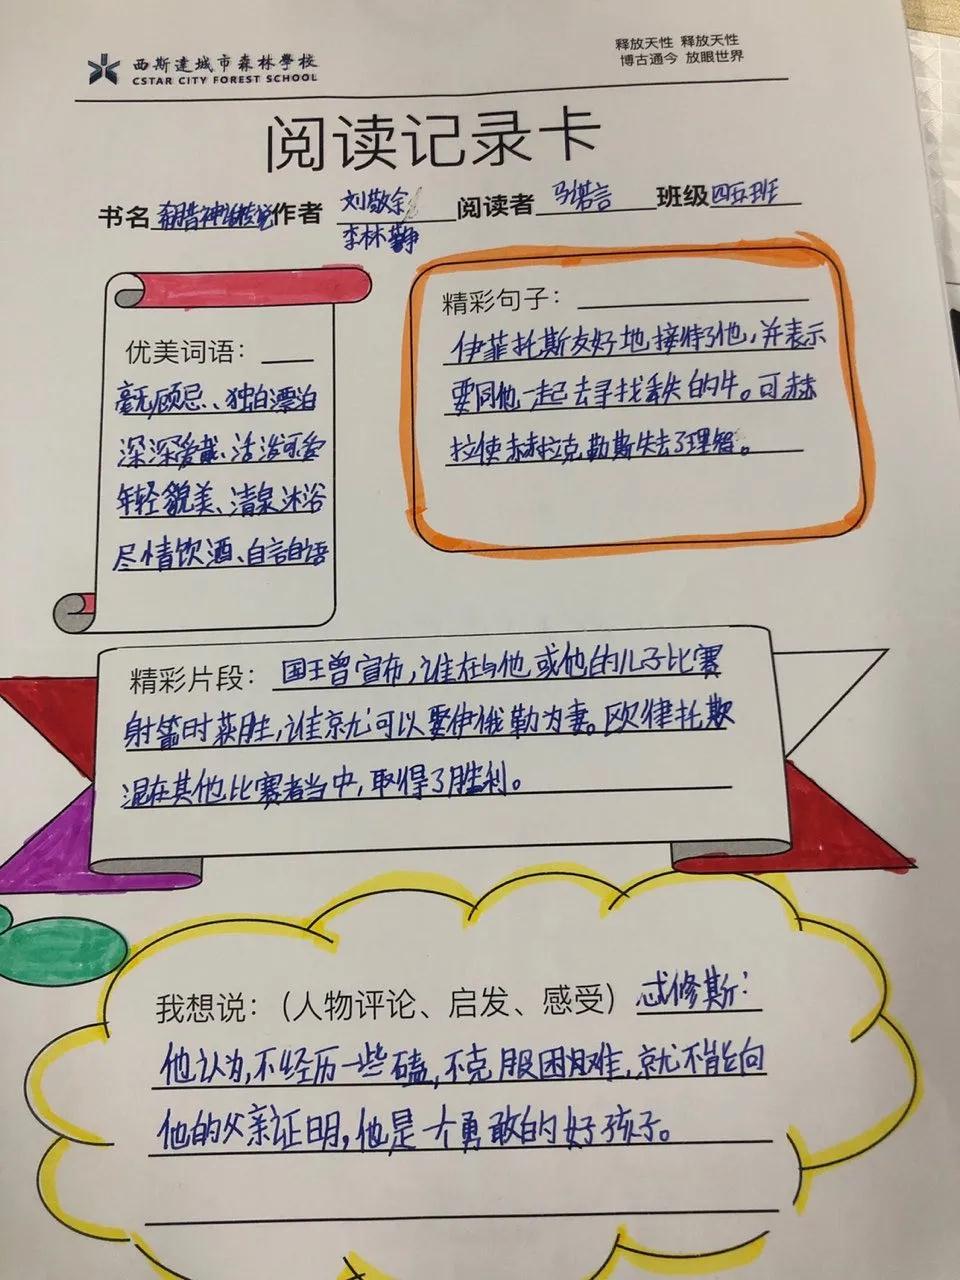 西斯达城市森林學校
CSTAR CITY FOREST SCHOOL
释放天性 释放天性
博古通今 放眼世界
阅读记录卡
书名 希腊神话传说 作者 刘敬余 阅读者 马诺言 班级 四五班
李林静
优美词语:
毫无顾忌、独自漂泊
深深爱戴、活泼可爱
年轻貌美、清泉沐浴
尽情饮酒、自言自语
精彩句子:
伊菲托斯友好地接待了他,并表示
要同他一起去寻找丢失的牛。可赫
拉使赫拉克勒斯失去了理智。
精彩片段: 国王曾宣布,谁在与他或他的儿子比赛
射箭时获胜,谁就可以娶伊俄勒为妻。欧律托斯
混在其他比赛者当中,取得了胜利。
我想说:(人物评论、启发、感受) 忒修斯:
他认为,不经历一些磕,不克服困难,就不能向
他的父亲证明,他是一个勇敢的好孩子。